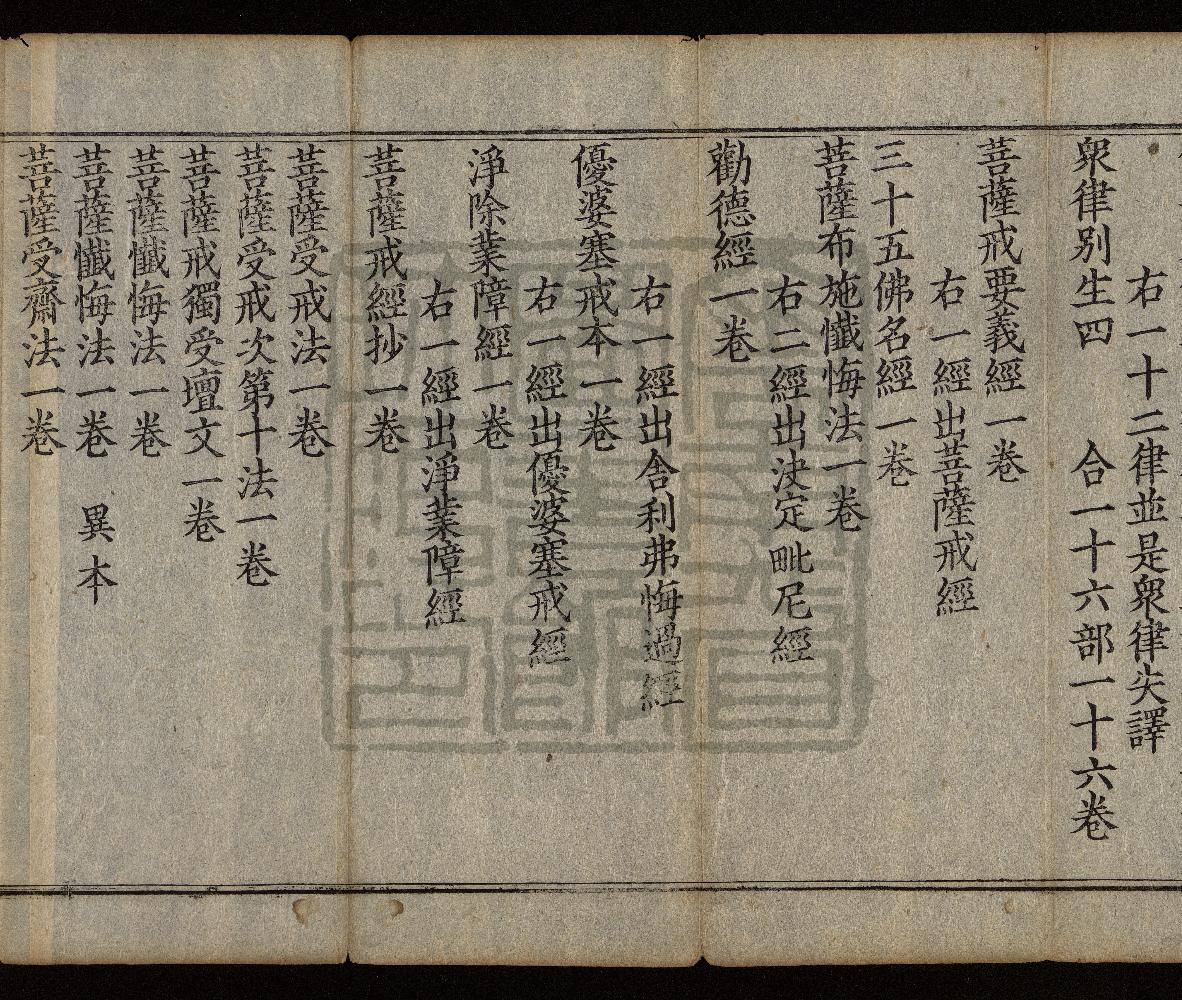 右一十二律並是衆律失譯
衆律别生四　合一十六部一十六卷
菩薩戒要義經一卷
右一經出菩薩戒經
三十五佛名經一卷
菩薩布施懺悔法一卷
右二經出決定毗尼經
勸德經一卷
右一經出舍利弗悔過經
優婆塞戒本一卷
右一經出優婆塞戒經
淨除業障經一卷
右一經出淨業障經
菩薩戒經抄一卷
菩薩受戒法一卷
菩薩受戒次第十法一卷
菩薩戒獨受壇文一卷
菩薩懺悔法一卷
菩薩懺悔法一卷　異本
菩薩受齋法一卷